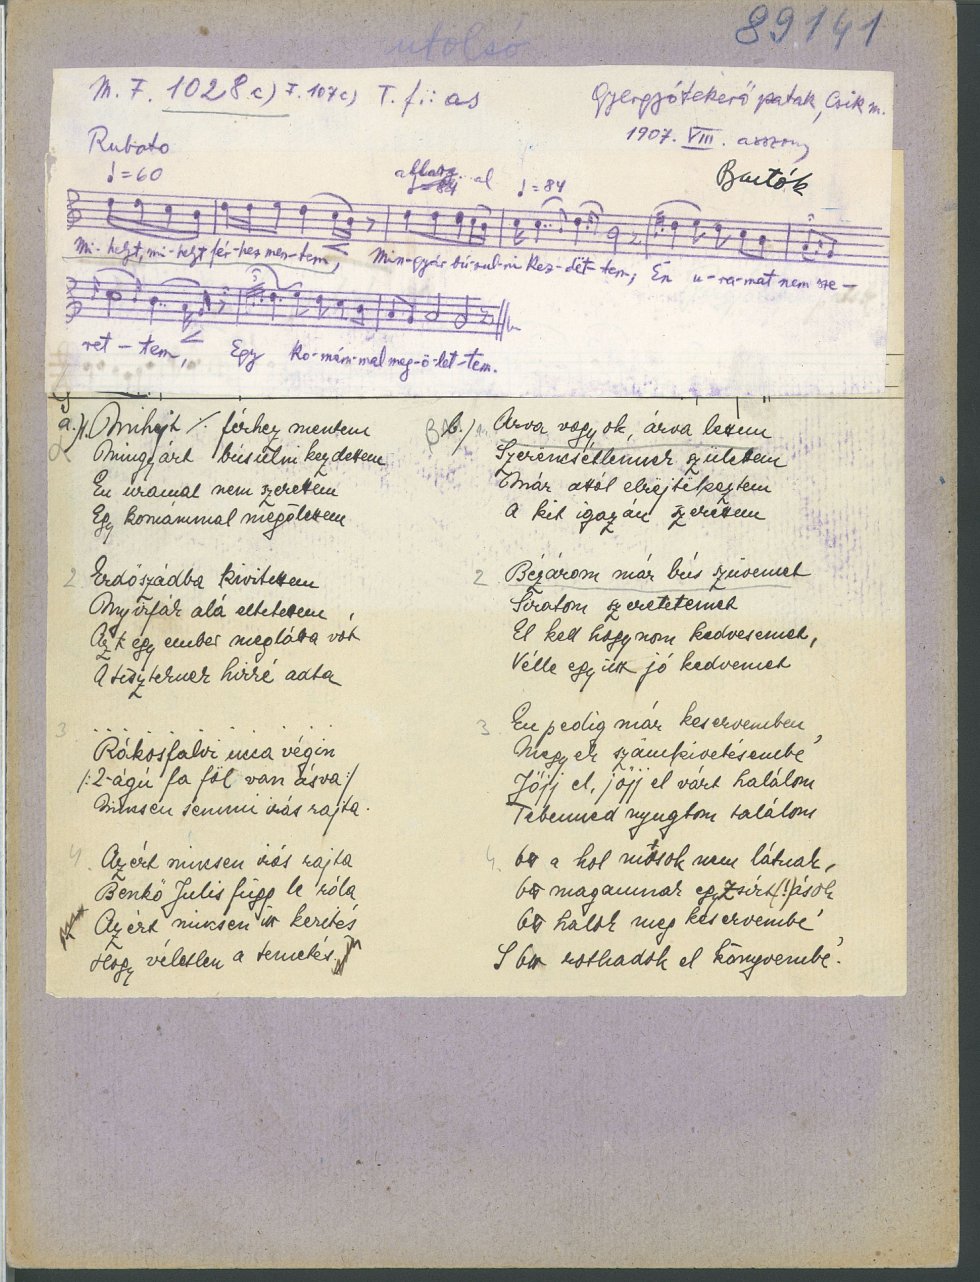 utolsó
89141
M. F. 1028 c) T. 107 c) T. f.: as
Gyergyótekerőpatak, Csik m.
1907. VIII. asszony
Bartók
Rubato
♩=60
allarg. al ♩=84
Mi-helyt, mi-helyt fér-hez men-tem, Min-gyár bú-sul-ni kez-dët-tem; Én u-ra-mat nem sze-
ret-tem, Egy ko-mám-mal meg-ö-let-tem.
a.) 1. Mihejt ٪ férhez mentem
Mingyárt búsulni kezdettem
Én uramat nem szerettem
Egy komámmal megölettem
2 Erdőszádba kivitettem
Nyírfák alá eltetettem
Azt egy ember meglátta vót
A tiszteknek hirré adta
3 . . . . . . . .
Rákosfalvi ucca végin
/: 2-ágú fa föl van ásva :/
Nincsen semmi írás rajta.
4. Azért nincsen írás rajta
Benkő Julis függ le róla
Azért nincsen itt kerités
Hogy véletlen a temetés.
b.) Árva vagyok, árva lettem
Szerencsétlennek születtem
Már attól elrejtőköztem
A kit igazán szerettem
2 Bézárom már bús szüvemet
Siratom szeretetemet
El kell hogynom kedvesemet,
Vélle együtt jó kedvemet
3 Én pedig már keservemben
Megyek számkivetésembe
Jőjj el, jőjj el várt halálom
Tebenned nyugtom találom
4. Itt a hol mások nem látnak,
Itt magamnak egy zsírt(!) ások
Itt halok meg keservembe
S itt rothadok el könyvembe.